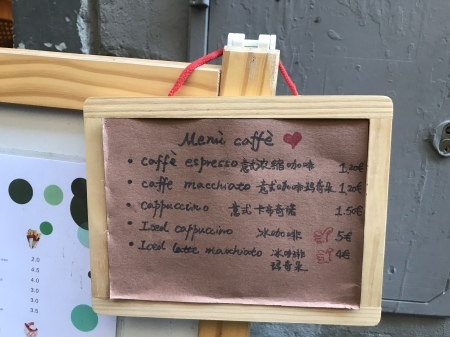 Menù caffè
• caffè espresso 意式浓缩咖啡 1.20€
• caffe macchiato 意式咖啡玛奇朵 1.20€
• cappuccino 意式卡布奇诺 1.50€
• Iced cappuccino 冰咖啡 5€
• Iced latte macchiato 冰咖啡 4€
玛奇朵
2.0
4.5
3.0
3.5